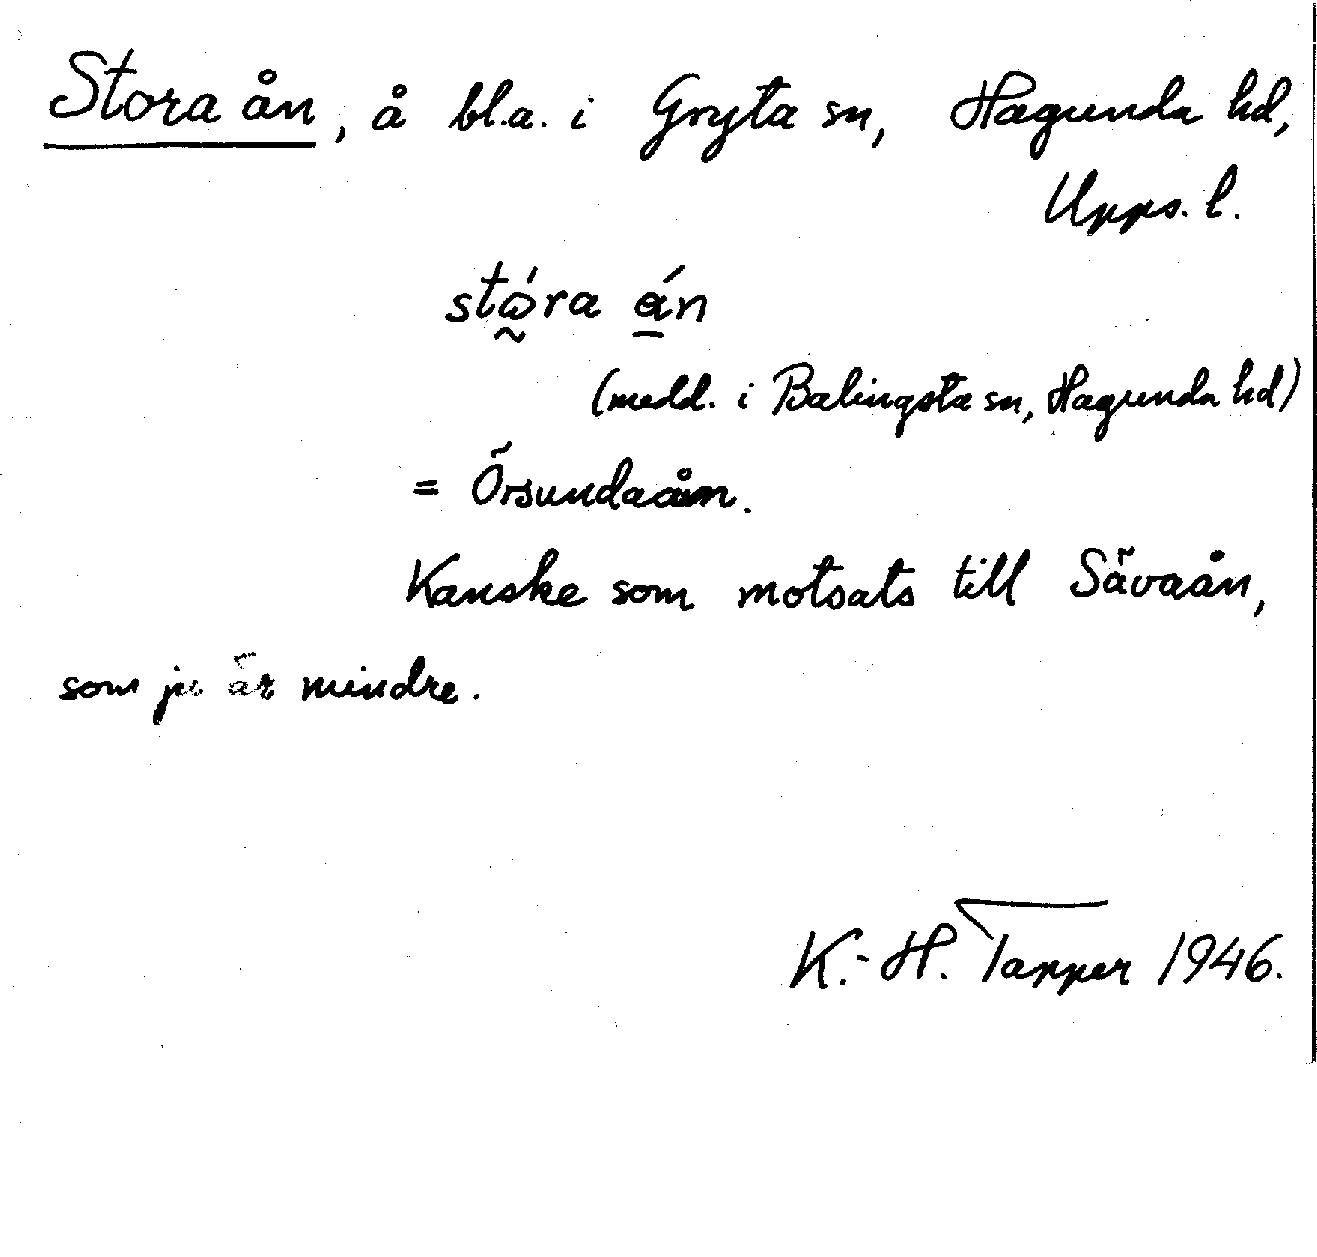 Stora ån, å bl.a. i Gryta sn, Hagunda hd,
Upps. l.
stώ̰ra á̱n
(medd. i Balingsta sn, Hagunda hd)
= Örsundaån.
Kanske som motsats till Sävaån,
som ju är mindre.
K.-H. Tapper 1946.